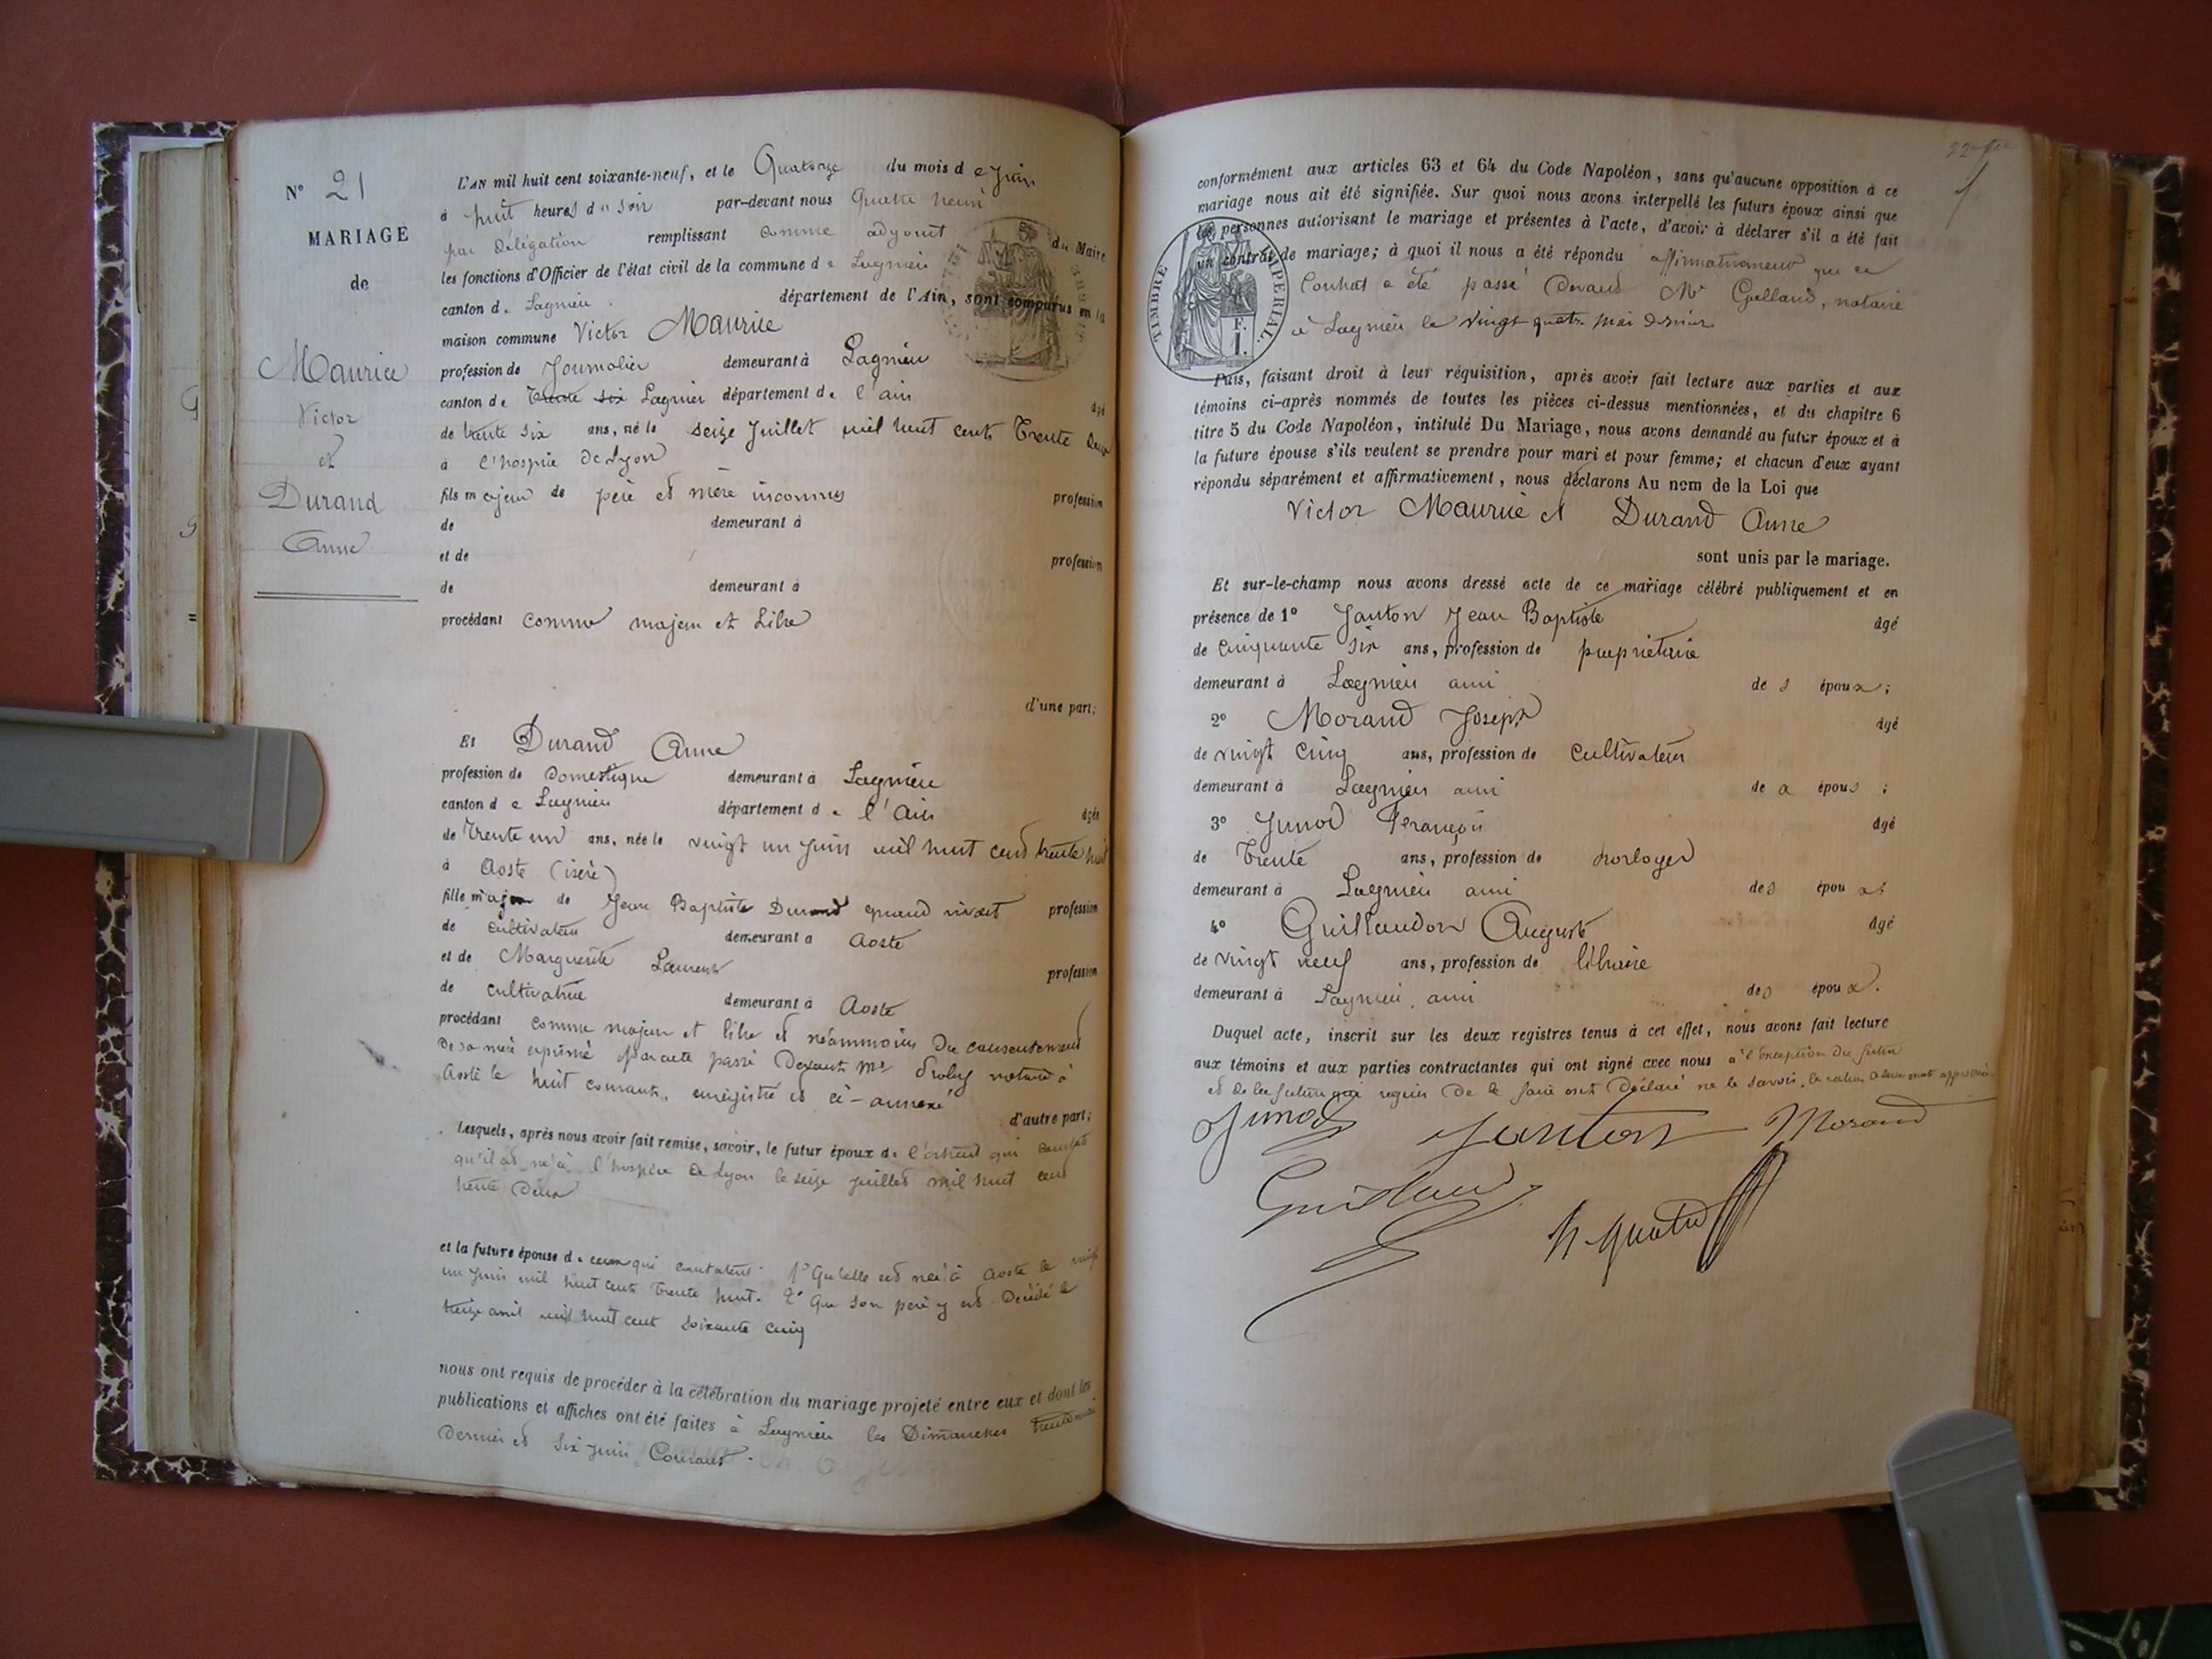 N° 21
MARIAGE
de
Maurice
Victor
et
Durand
Anne
L'AN mil huit cent soixante-neuf, et le Quatorze du mois de Juin
à huit heures du soir par-devant nous Quatre henri
par délégation remplissant comme adjoint du Maire
les fonctions d'Officier de l'état civil de la commune de Lagnieu
canton de Lagnieu département de l'Ain, sont comparus en la
maison commune Victor Maurice
profession de Journalier demeurant à Lagnieu
canton de Trente six Lagnieu département de l'ain âgé
de trente six ans, né le seize Juillet mil huit cent Trente deux
à l'hospice de Lyon
fils majeur de père et mère inconnus profession
de demeurant à
et de profession
de demeurant à
procédant comme majeur et Libre
d'une part;
Et Durand Anne
profession de domestique demeurant à Lagnieu
canton de Lagnieu département de l'Ain âgée
de Trente un ans, née le vingt un juin mil huit cent trente huit
à Aoste (isère)
fille majeur de Jean Baptiste Durand quand vivait profession
de cultivateur demeurant à Aoste
et de Marguerite Laurent profession
de cultivatrice demeurant à Aoste
procédant comme majeur et libre et néammoins du consentement
de sa mère exprimé par acte passé devant Me notaire à
Aoste le huit courant, enregistré et ci-annexé
d'autre part;
Lesquels, après nous avoir fait remise, savoir, le futur époux de l'extrait qui constate
qu'il est né à l'hospice de Lyon le seize juillet mil huit cent
trente deux
et la future épouse de ceux qui constatent 1° Qu'elle est née à Aoste le vingt
un juin mil huit cent trente huit. 2° Que son père y est décédé le
treize avril mil huit cent soixante cinq
nous ont requis de procéder à la célébration du mariage projeté entre eux et dont les
publications et affiches ont été faites à Lagnieu les Dimanches trente mai
dernier et six juin Courant.
conformément aux articles 63 et 64 du Code Napoléon, sans qu'aucune opposition à ce
mariage nous ait été signifiée. Sur quoi nous avons interpellé les futurs époux ainsi que
les personnes autorisant le mariage et présentes à l'acte, d'avoir à déclarer s'il a été fait
un contrat de mariage; à quoi il nous a été répondu affirmativement que ce
Contrat a été passé devant Me Galland, notaire
à Lagnieu le vingt quatre mai dernier
TIMBRE IMPÉRIAL.
F.
1.
Puis, faisant droit à leur réquisition, après avoir fait lecture aux parties et aux
témoins ci-après nommés de toutes les pièces ci-dessus mentionnées, et du chapitre 6
titre 5 du Code Napoléon, intitulé Du Mariage, nous avons demandé au futur époux et à
la future épouse s'ils veulent se prendre pour mari et pour femme; et chacun d'eux ayant
répondu séparément et affirmativement, nous déclarons Au nom de la Loi que
Victor Maurice et Durand Anne
sont unis par le mariage.
Et sur-le-champ nous avons dressé acte de ce mariage célébré publiquement et en
présence de 1° Janton Jean Baptiste âgé
de Cinquante six ans, profession de propriétaire
demeurant à Lagnieu ami des époux;
2° Morand Joseph âgé
de vingt cinq ans, profession de Cultivateur
demeurant à Lagnieu ami de époux;
3° Junod François âgé
de Trente ans, profession de horloger
demeurant à Lagnieu ami des époux;
4° Guillaudon Auguste âgé
de vingt neuf ans, profession de libraire
demeurant à Lagnieu, ami des époux.
Duquel acte, inscrit sur les deux registres tenus à cet effet, nous avons fait lecture
aux témoins et aux parties contractantes qui ont signé avec nous à l'exception du futur
et de la future qui requis de le faire ont déclaré ne le savoir,
Junod Janton Morand